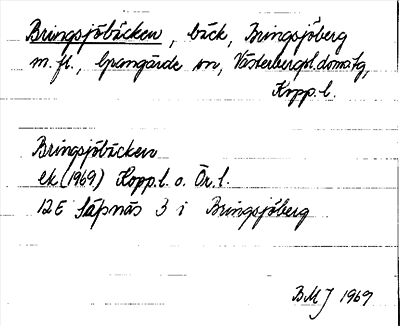 Bringsjöbäcken, bäck, Bringsjöberg
m.fl., Grangärde sn, Västerbergsl. domsg,
Kopp.l.
Bringsjöbäcken
ek (1969) Kopp.l. o. Ör.l.
12E Säfsnäs 3 i Bringsjöberg
BMJ 1969